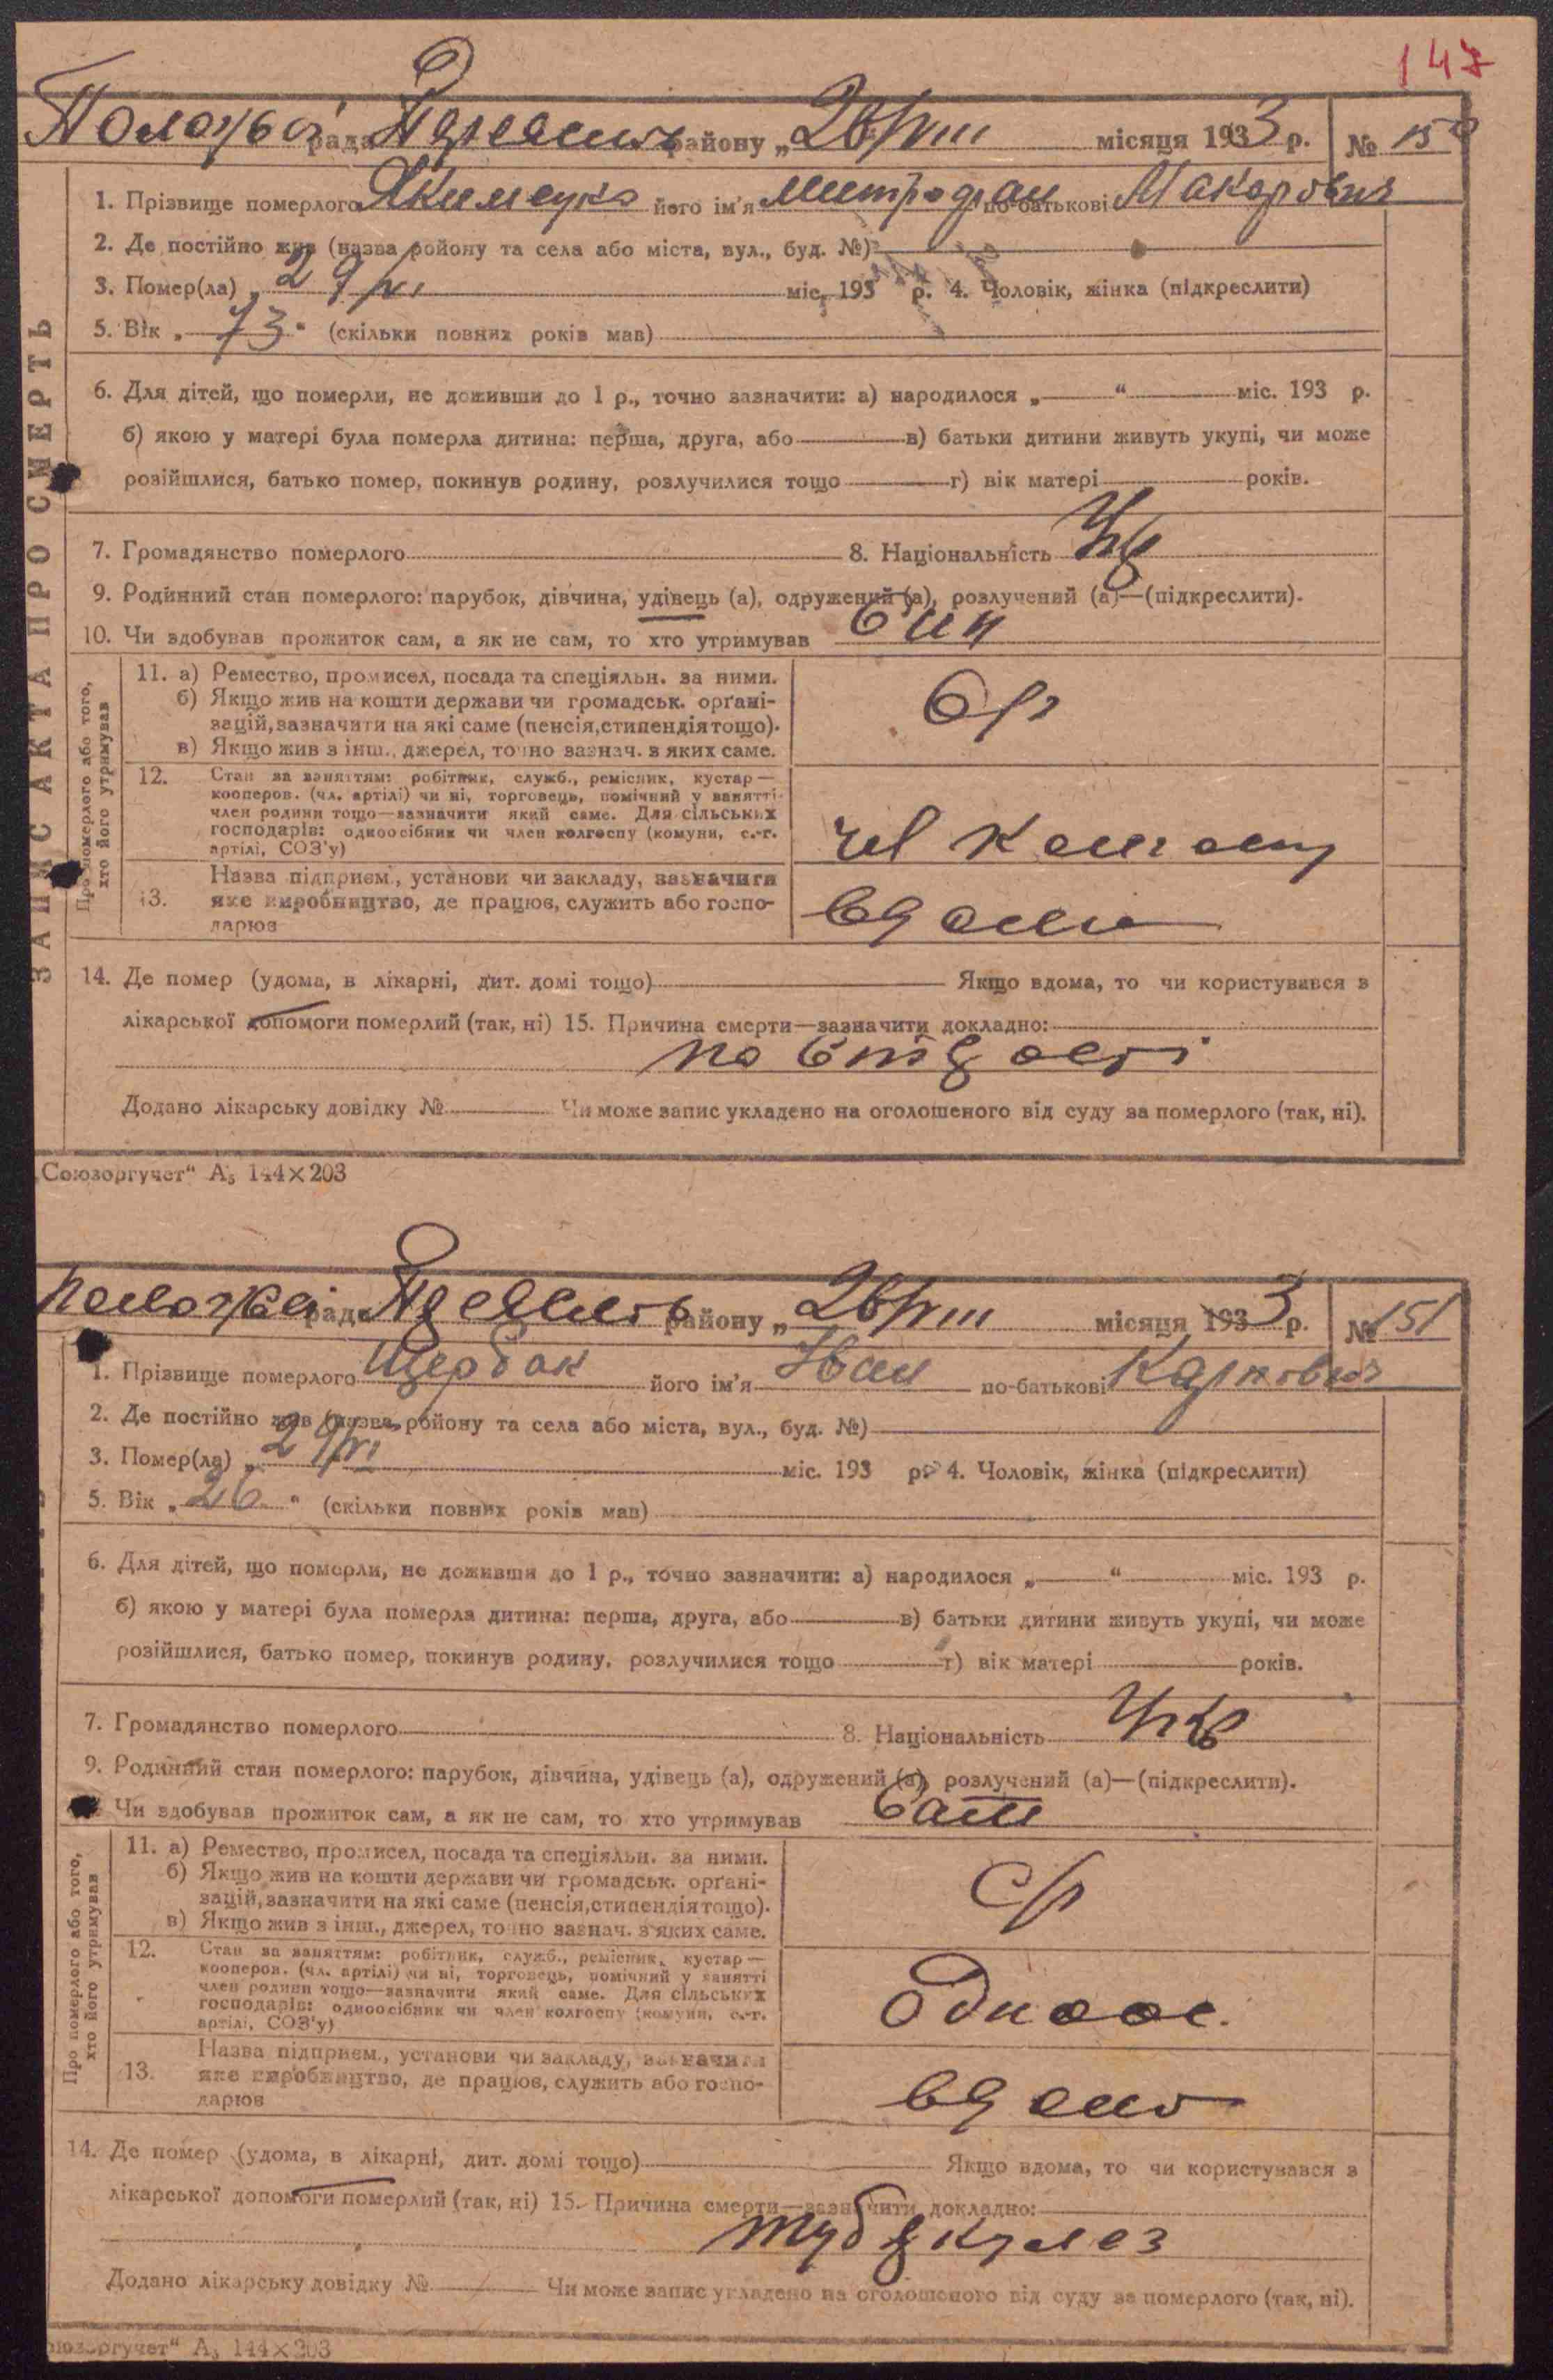 147
рада району „ місяця 1933 р. № 150
1. Прізвище померлого його ім'я Митрофан по-батькові Макарович
2. Де постійно жив (назва району та села або міста, вул., буд. №)
3. Помер(ла) „ 29/VI міс. 193 р. 4. Чоловік, жінка (підкреслити)
5. Вік „ 73 " (скільки повних років мав)
6. Для дітей, що померли, не доживши до 1 р., точно зазначити: а) народилося „ “ міс. 193 р.
б) якою у матері була померла дитина: перша, друга, або в) батьки дитини живуть укупі, чи може
розійшлися, батько помер, покинув родину, розлучилися тощо г) вік матері років.
7. Громадянство померлого 8. Національність Укр
9. Родинний стан померлого: парубок, дівчина, удівець (а), одружений (а), розлучений (а)—(підкреслити).
10. Чи здобував прожиток сам, а як не сам, то хто утримував син
ЗАПИС АКТА ПРО СМЕРТЬ
Про померлого або того,
хто його утримував
11. а) Ремество, промисел, посада та спеціяльн. за ними.
б) Якщо жив на кошти держави чи громадськ. орґані-
зацій, зазначити на які саме (пенсія, стипендія тощо).
в) Якщо жив з інш., джерел, точно зазнач. з яких саме.
с/г
12. Стан за заняттям: робітник, служб., ремісник, кустар—
кооперов. (чл. артілі) чи ні, торговець, помічний у занятті
член родини тощо—зазначити який саме. Для сільських
господарів: одноосібник чи член колгоспу (комуни, с.-г.
артілі, СОЗ'у)
чл колгоспу
Назва підприєм., установи чи закладу, зазначити
13. яке виробництво, де працюв, служить або госпо-
дарює
вдома
14. Де помер (удома, в лікарні, дит. домі тощо) Якщо вдома, то чи користувався з
лікарської допомоги померлий (так, ні) 15. Причина смерти—зазначити докладно:
по старості
Додано лікарську довідку № Чи може запис укладено на оголошеного від суду за померлого (так, ні).
„Союзоргучет“ А₅ 144×203
рада району „ місяця 1933 р. № 151
1. Прізвище померлого Щербак його ім'я Іван по-батькові Карпович
2. Де постійно жив (назва району та села або міста, вул., буд. №)
3. Помер(ла) „ 29/VI міс. 193 р. 4. Чоловік, жінка (підкреслити)
5. Вік „ 26 “ (скільки повних років мав)
6. Для дітей, що померли, не доживши до 1 р., точно зазначити: а) народилося „ “ міс. 193 р.
б) якою у матері була померла дитина: перша, друга, або в) батьки дитини живуть укупі, чи може
розійшлися, батько помер, покинув родину, розлучилися тощо г) вік матері років.
7. Громадянство померлого 8. Національність Укр
9. Родинний стан померлого: парубок, дівчина, удівець (а), одружений (а), розлучений (а)—(підкреслити).
Чи здобував прожиток сам, а як не сам, то хто утримував сам
Про померлого або того,
хто його утримував
11. а) Ремество, промисел, посада та спеціяльн. за ними.
б) Якщо жив на кошти держави чи громадськ. орґані-
зацій, зазначити на які саме (пенсія, стипендія тощо).
в) Якщо жив з інш., джерел, точно зазнач. з яких саме.
с/г
12. Стан за заняттям: робітник, служб., ремісник, кустар—
кооперов. (чл. артілі) чи ні, торговець, помічний у занятті
член родини тощо—зазначити який саме. Для сільських
господарів: одноосібник чи член колгоспу (комуни, с.-г.
артілі, СОЗ'у)
Одноос.
Назва підприєм., установи чи закладу, зазначити
13. яке виробництво, де працюв, служить або госпо-
дарює
вдома
14. Де помер (удома, в лікарні, дит. домі тощо) Якщо вдома, то чи користувався з
лікарської допомоги померлий (так, ні) 15. Причина смерти—зазначити докладно:
туберкульоз
Додано лікарську довідку № Чи може запис укладено на оголошеного від суду за померлого (так, ні).
юзоргучет“ А₅ 144×203